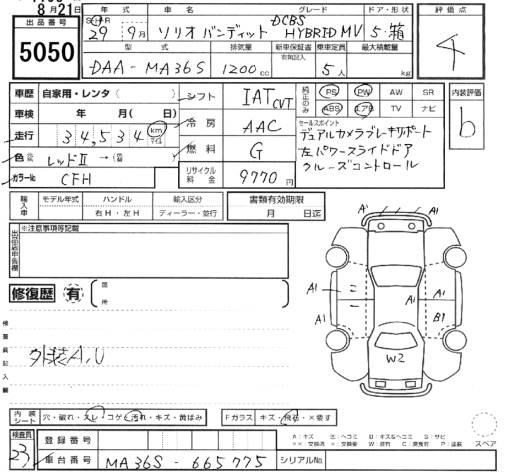 8月21日
出品番号
5050
年式
車名
グレード
ドア・形状
29年 9月
ソリオ バンディット
DCBS
HYBRID MV
5・箱
評価点
4
型式
排気量
新車保証書
有無記入
乗車定員
最大積載量
DAA-MA36S
1200cc
5人
kg
車歴 自家用・レンタ( )
車検 年 月( 日)
走行 34,534 km マイル
色 レッドⅡ → (
カラーNo CFH
シフト IAT CVT
冷房 AAC
燃料 G
リサイクル料金 9770円
純正のみ
PS PW AW SR
ABS エアB TV ナビ
内装評価
b
セールスポイント
デュアルカメラブレーキサポート
左パワースライドドア
クルーズコントロール
輸入車
モデル年式
ハンドル
右H・左H
輸入区分
ディーラー・並行
書類有効期限
月 日迄
出品店申告欄
※注意事項等記載
修復歴 有
箇所
検査員記入欄
外装A,U
A1
A1
A1
A1
A1
A1
B1
W2
内装シート 穴・破れ・スレ・コゲ・汚れ・キズ・黄ばみ
Fガラス キズ・飛石・×要す
スペア
検査員
23
登録番号
車台番号 MA36S-665775
シリアルNo.